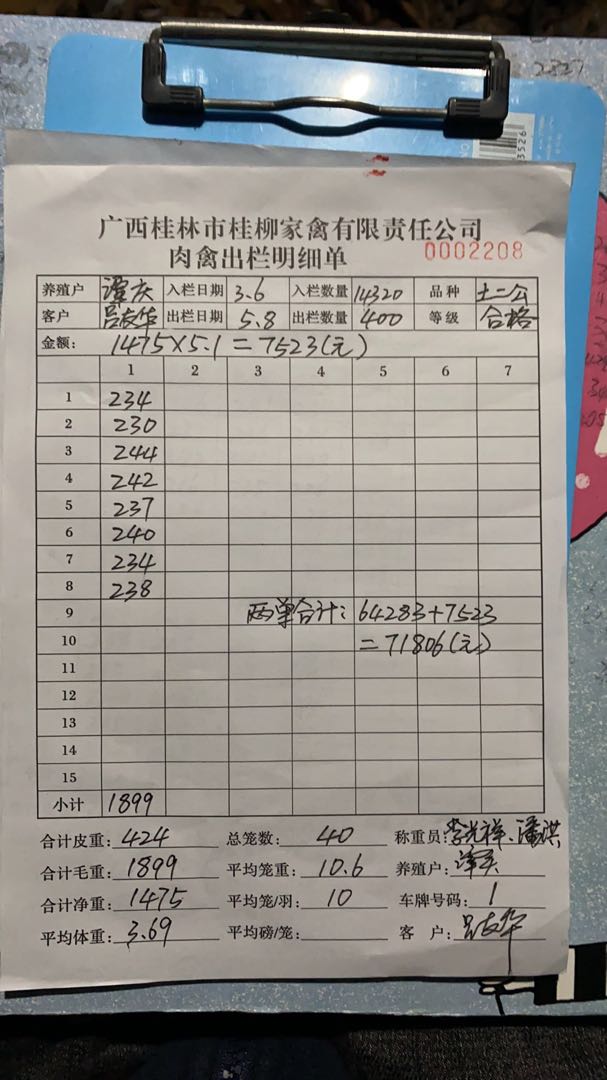 2827
广西桂林市桂柳家禽有限责任公司
肉禽出栏明细单 0002208
养殖户 谭庆 入栏日期 3.6 入栏数量 14320 品种 土二公
客户 吕友华 出栏日期 5.8 出栏数量 400 等级 合格
金额: 1475×5.1=7523(元)
1 2 3 4 5 6 7
1 234
2 230
3 244
4 242
5 237
6 240
7 234
8 238
9 两单合计: 64283+7523
10 =71806(元)
11
12
13
14
15
小计 1899
合计皮重: 424 总笼数: 40 称重员: 李光祥、潘洪
合计毛重: 1899 平均笼重: 10.6 养殖户: 谭庆
合计净重: 1475 平均笼/羽: 10 车牌号码: 1
平均体重: 3.69 平均磅/笼: 客 户: 吕友华